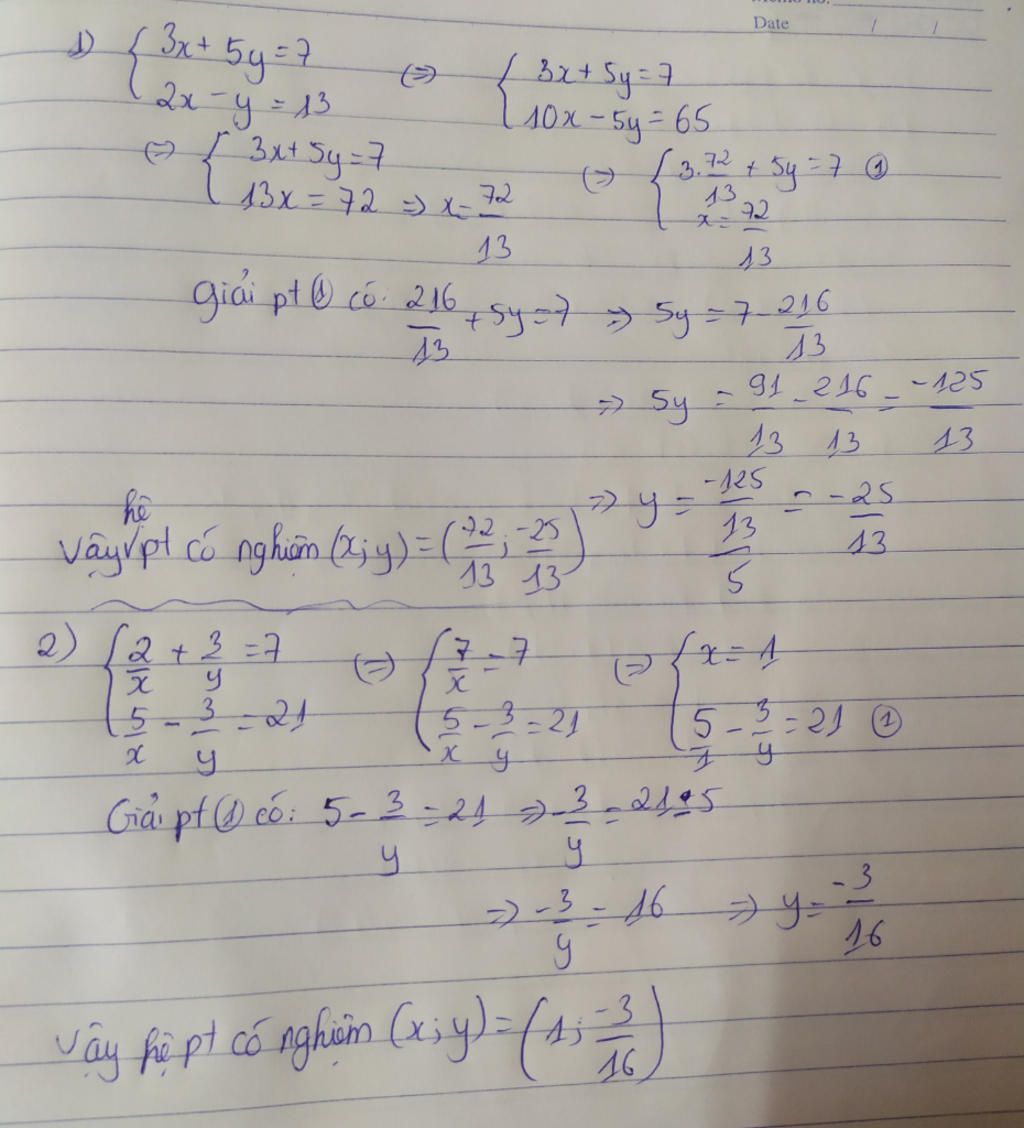 Memo no.
Date / /
1) { 3x + 5y = 7 ; 2x - y = 13 (=) { 3x + 5y = 7 ; 10x - 5y = 65
(=) { 3x + 5y = 7 ; 13x = 72 => x = 72/13 (=) { 3.72/13 + 5y = 7 ① ; x = 72/13
Giải pt ① có: 216/13 + 5y = 7 => 5y = 7 - 216/13
=> 5y = 91/13 - 216/13 = -125/13
=> y = (-125/13)/5 = -25/13
Vậy hệ pt có nghiệm (x;y) = (72/13; -25/13)
2) { 2/x + 3/y = 7 ; 5/x - 3/y = 21 (=) { 7/x = 7 ; 5/x - 3/y = 21 (=) { x = 1 ; 5/1 - 3/y = 21 ①
Giải pt ① có: 5 - 3/y = 21 => -3/y = 21 - 5
=> -3/y = 16 => y = -3/16
Vậy hệ pt có nghiệm (x;y) = (1; -3/16)